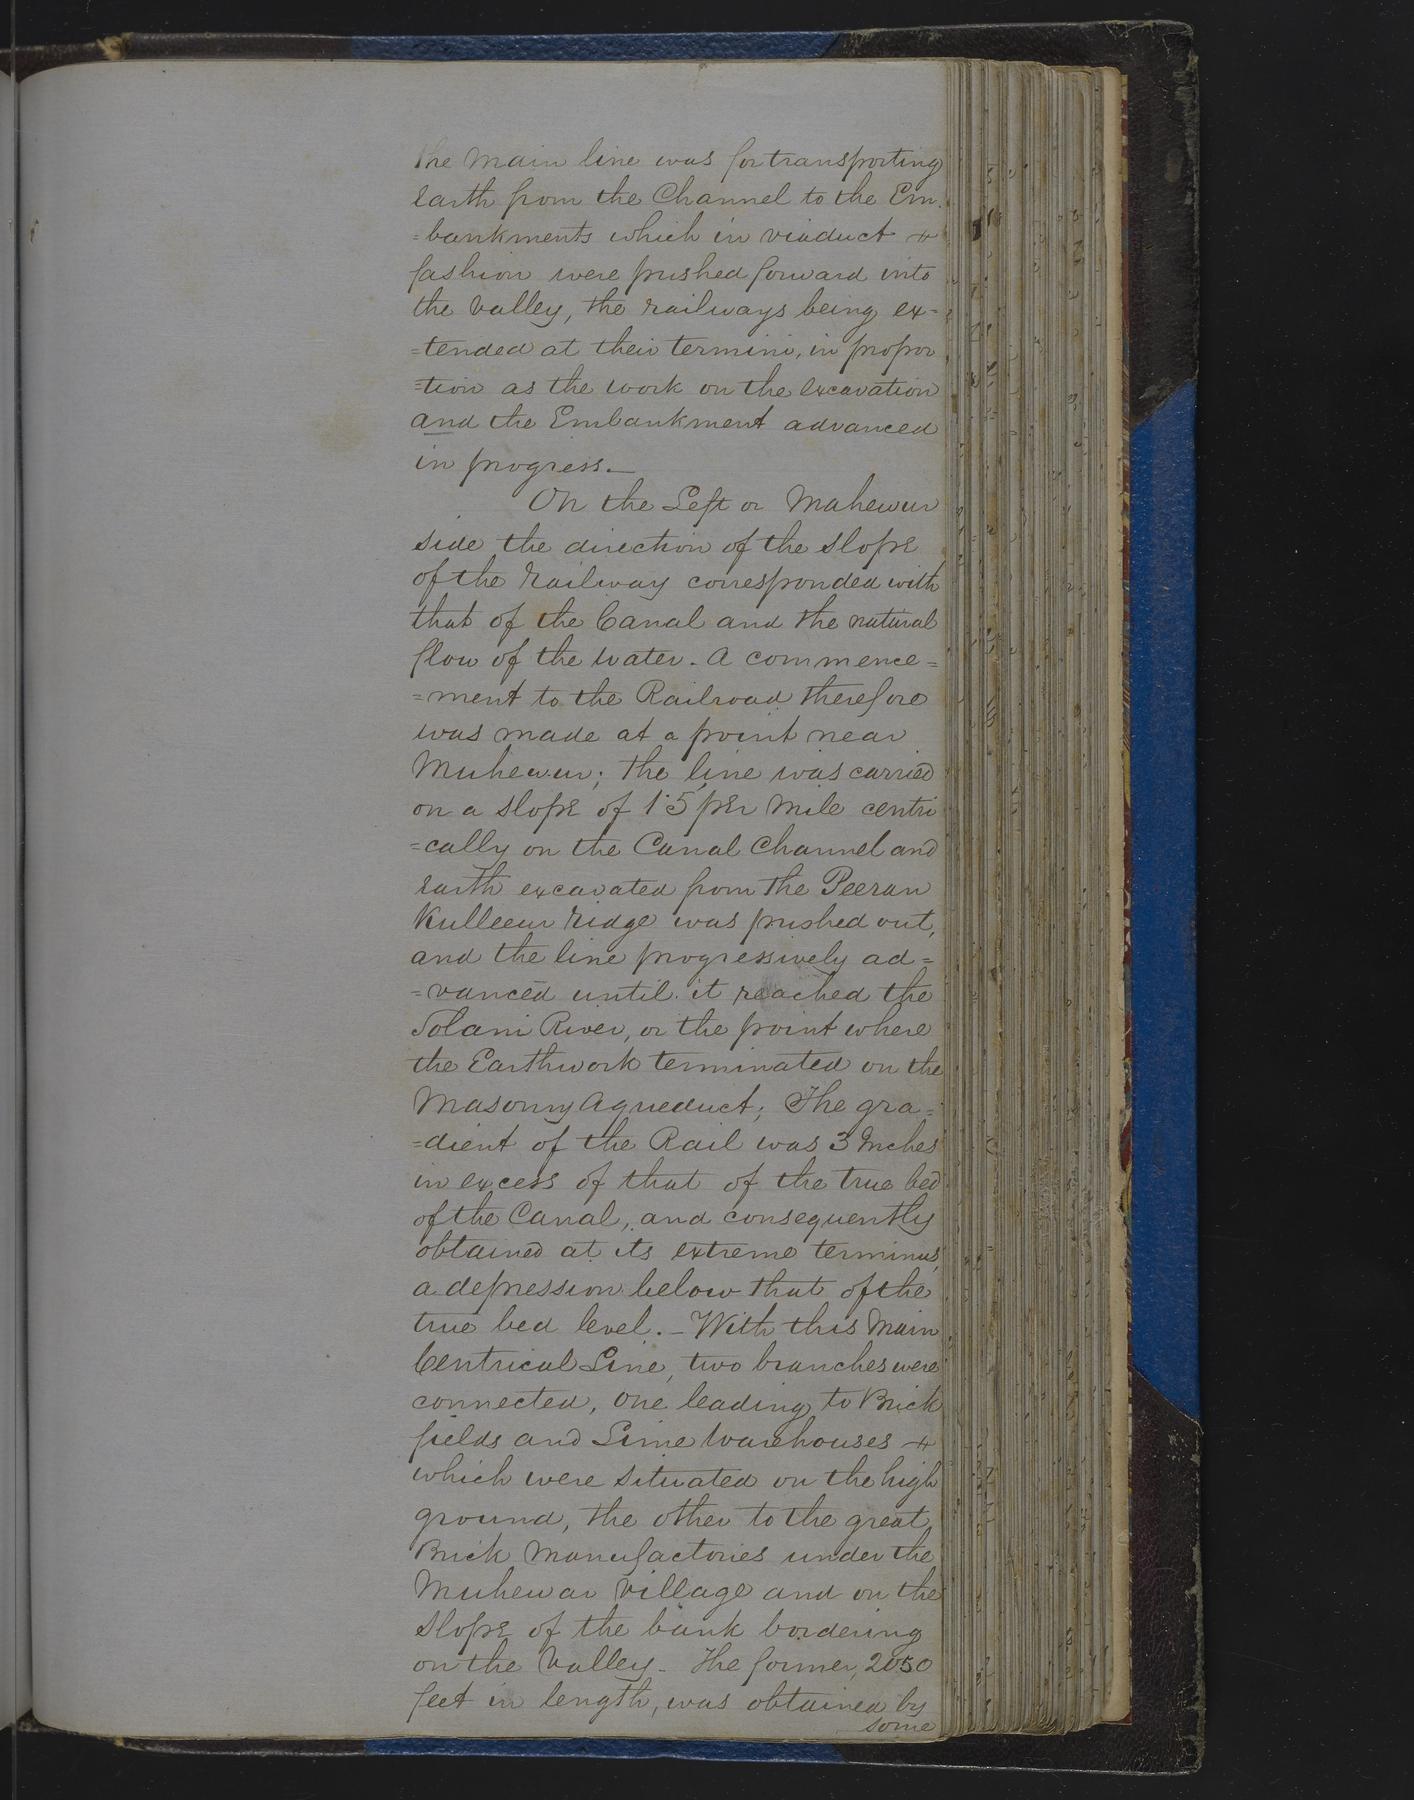 the Main line was for transporting
Earth from the Channel to the Em.
=bankments which in viaduct
fashion were pushed forward into
the Valley, the railways being ex-
=tended at their termini, in propor
=tion as the work on the excavation
and the Embankment advanced
in progress._
On the Left or Mahewur
side the direction of the slope
of the railway corresponded with
that of the Canal and the natural
flow of the water. A commence=
=ment to the Railroad therefore
was made at a point near
Muhewur; the line was carried
on a slope of 1·5 per Mile centri
=cally on the Canal Channel and
Earth excavated from the Peeran
Kulleeur ridge was pushed out,
and the line progressively ad=
=vanced until it reached the
Solani River, or the point where
the Earthwork terminated on the
Masonry Aqueduct; The gra=
=dient of the Rail was 3 Inches
in excess of that of the true bed
of the Canal, and consequently
obtained at its extreme terminus,
a depression below that of the
true bed level. – With this Main
Centrical Line, two branches were
connected, One leading to Brick
fields and Lime Warehouses
which were situated on the high
ground, the other to the great
Brick Manufactories under the
Muhewar Village and on the
slope of the bank bordering
on the Valley – The former, 2050
feet in length, was obtained by
some